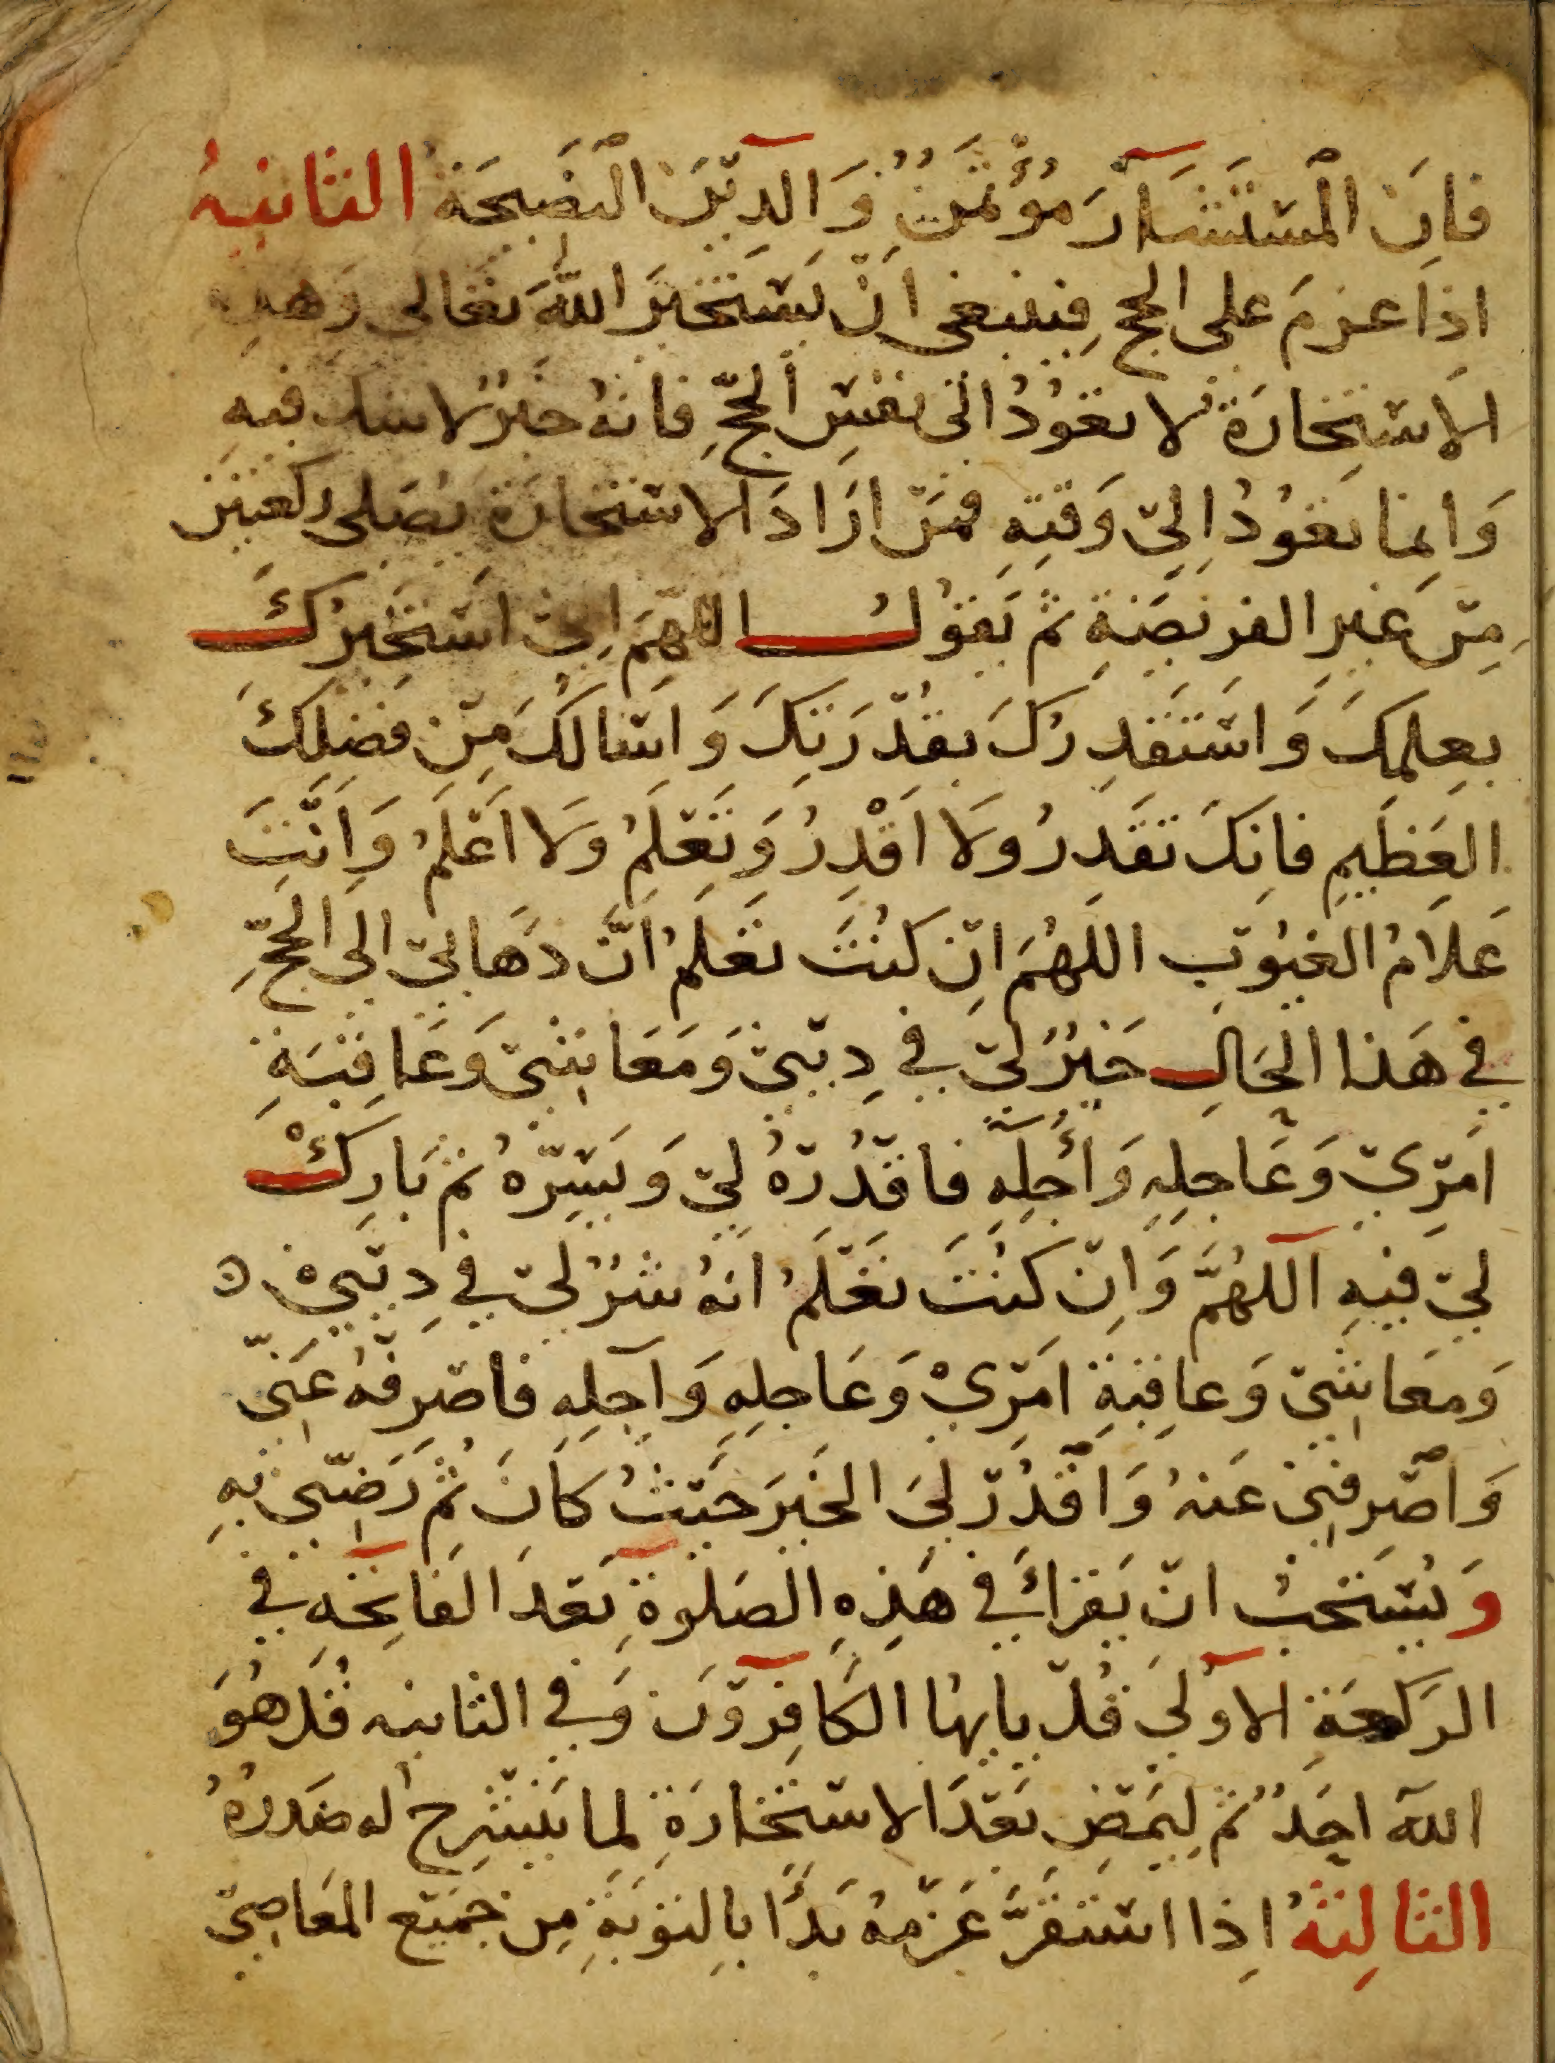 فاِنَ الْمسْتَشَارَ مُؤْتَمَنٌ وَالدِّيْنَ النَصِيحَةُ الثانيهُ
اذا عزمَ على الحج فينبغى انْ يَسْتَخيَر اللّٰهَ تعَالى وَهذِه
الاِسْتِخارَة لا تعَوُدُ الىَ نفسِ الحَجِّ فانهُ خيَرٌ لاشك فيهِ
وَانِما تعَوُدُ اِلىْ وَقتِهِ فمَنْ ارَادَ الاسْتخارَةَ يُصَلى ركعتَيْن
مِنْ غيِر الفرِيضَةِ ثم يَقوُلُ اللهُمَ اِنىْ اسْتَخِيرُكَ
بعِلمِكَ وَاسْتَقدِرُكَ بقُدْرَتِكَ وَاسْالكَ مِنْ فضلِكَ
العَظيِمِ فاِنكَ تقَدِرُ وَلَا اَقْدِرُ وَتَعْلَمُ وَلَا اَعْلَمُ وَاَنْتَ
عَلَامُ الغيُوبِ اللَهُمَ اِنْ كنُتَ تعَلَمُ اَنَّ ذهَابىْ الىَ الحَجِّ
فى هَذا الحَالِ خيَرٌ لىْ فى دِيْنىْ وَمَعَاشىْ وَعَاقِبَةِ
امَرِىْ وَعَاجلِهِ وَآجِلِهِ فاقدُرْهُ لىْ وَيَسِّرْهُ ثم بَارِكْ
لىْ فيهِ اللهُمَّ وَاِنْ كنُتَ تعَلَمُ انَهُ شرٌ لىْ فى دِيْنىْ ٥
وَمعَاشىْ وَعاقِبَةِ امَرْىْ وَعَاجلِهِ وَآجِلِهِ فاصْرِفْهُ عَنىّ
وَاصْرِفنىْ عَنهُ وَاقْدُرْ لىَ الخيَرَ حَيْثُ كانَ ثُم رَضِّنى بهِ
وَيُسْتَحَبُ انْ يَقرَأَ فى هَذِهِ الصَلوةِ بَعْدَ الفاتِحَهِ فى
الرَكعَةِ الاوُلىَ قُلْ يايها الكَافِرُوْنَ وَفى الثانيه قُل هُوَ
اللهَ احَدٌ ثم لِيمَضِ بَعْدَ الاسْتخارَةِ لِما يَنْشَرِحُ له صَدرُهُ
الثالِثهُ اِذا اسْتَقرَّ عَزْمهُ بَدَأَ بالِتوَبَةِ مِن جَميْعِ المَعَاصِىْ